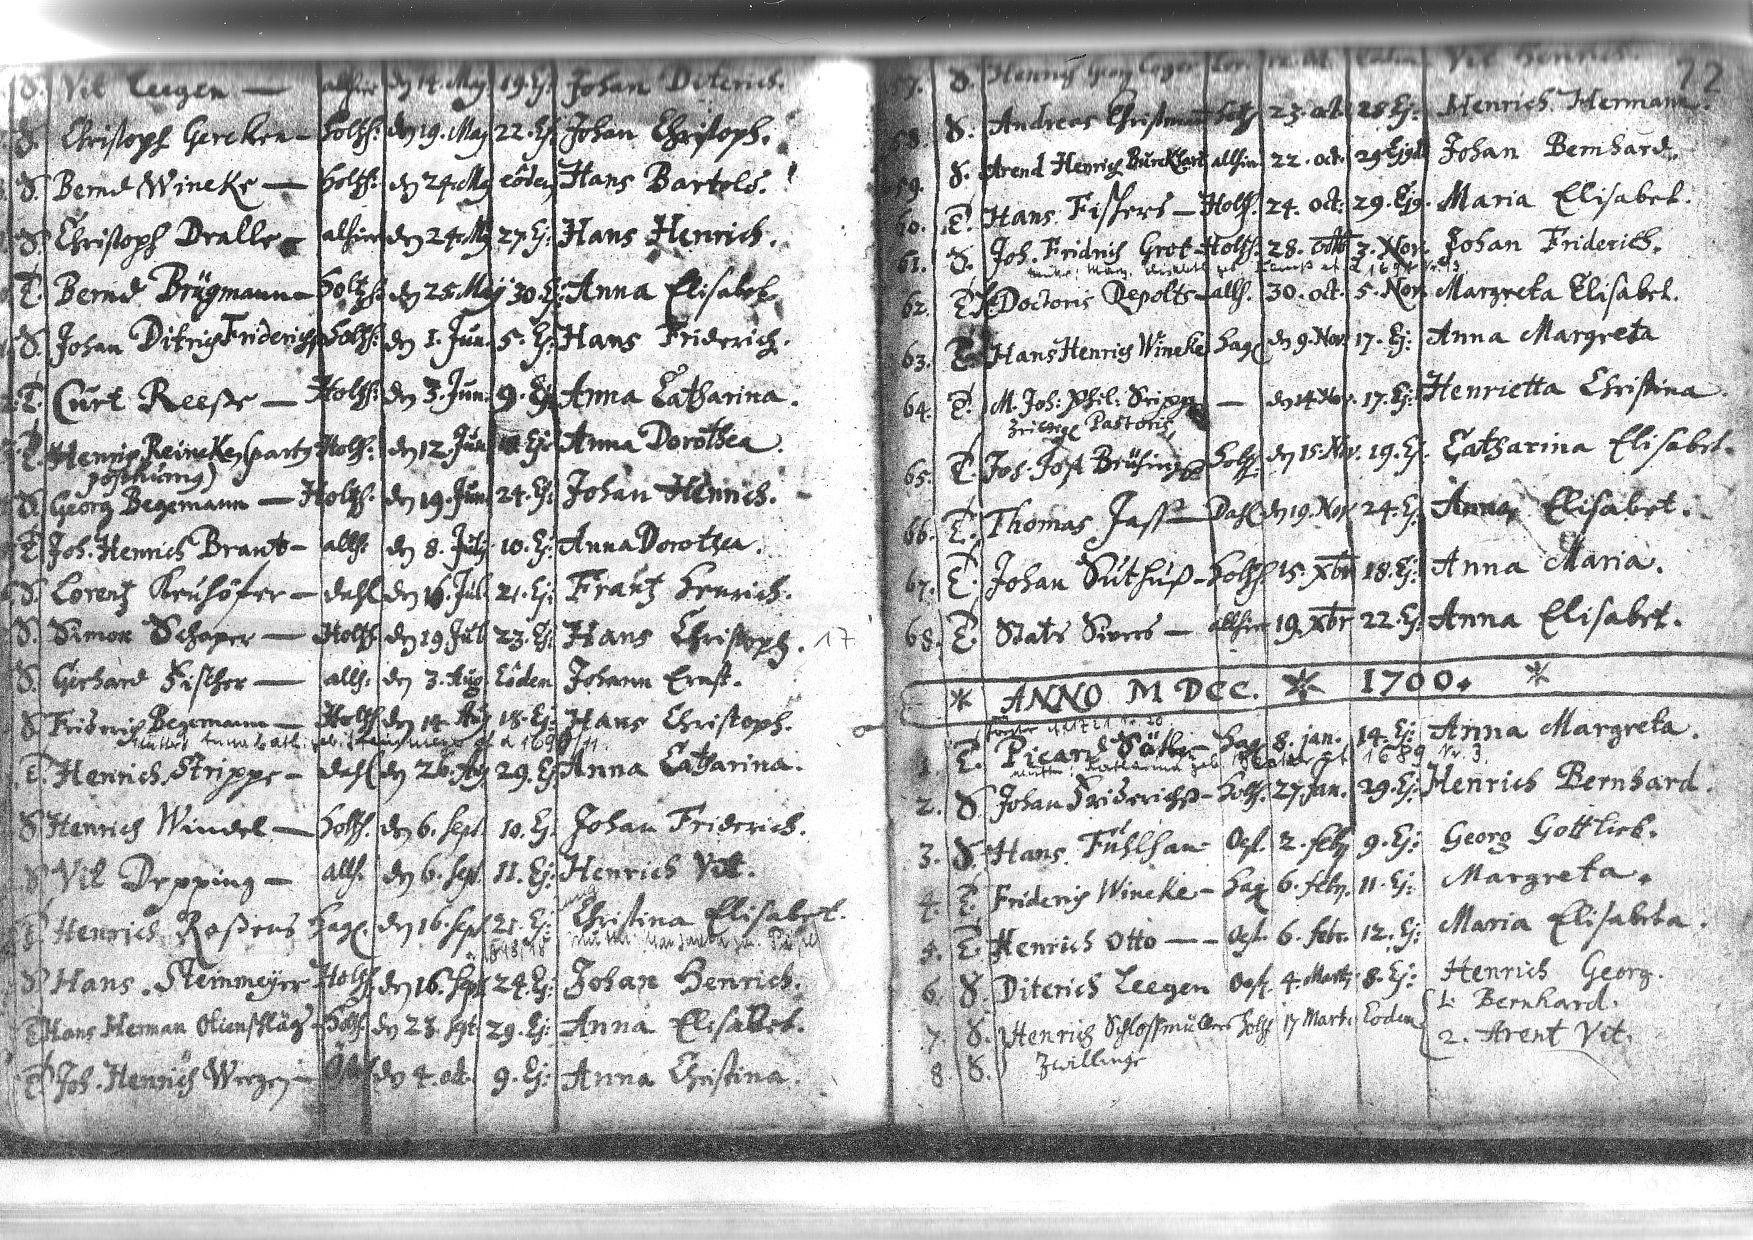 S. Vit Leegen — allhier den 14. May 19. Ej. Johan Diterich.
S. Christoph Gercken — Holtzh: den 19. May 22. Ej: Johan Christoph.
S. Bernd Wineke — Holtzh: den 24. May eôdem Hans Bartols.
S. Christoph Dralle — allhier den 24. May 27. Ej: Hans Henrich.
T. Bernd Brügmann — Holtzh: den 25. May 30. Ej: Anna Elisabet.
S. Johan Ditrich Friderichs Holtzh: den 1. Jun. 5. Ej: Hans Friderich.
T. Curt Reeße — Holtzh: den 3. Jun. 9. Ej: Anna Catharina.
T. Henrich Reineken (partus Holtzh: den 12. Jun. Ej: Anna Dorothea.
posthumus)
S. Georg Begemann — Holtzh. den 19. Jun. 24. Ej: Johan Henrich.
T. Joh. Henrich Brant — allh. den 8. July 10. Ej: Anna Dorothea.
S. Lorentz Kruhöfer — dahl den 16. Jul. 21. Ej: Frantz Henrich.
S. Simon Schaper — Holtzh. den 19 Jul. 23. Ej: Hans Christoph. 17
S. Gerhard Fischer — allh: den 3. Aug. Eôdem Johann Ernst.
S. Friderich Begemann — Holtzh. den 14. Aug 18. Ej: Hans Christoph.
T. Henrich Strippe — dahl den 26. Aug 29. Ej: Anna Catharina.
S. Henrich Windel — Holtzh. den 6. Sept. 10. Ej: Johan Friderich.
S. Vit Depping — allh. den 6. Sept. 11. Ej: Henrich Vit.
T. Henrich Roßens Hag. den 16. Sept. 21. Ej: Christina Elisabet.
S. Hans Steinmeyer Holtzh. den 16. Sept. 24. Ej: Johan Henrich.
T. Hans Herman Olienschläg. Holtzh. den 23. Sept. 29. Ej: Anna Elisabet.
T. Joh. Henrich den 4. oct. 9. Ej: Anna Christina.
72
57. S. Henrich Georg Vit Henrich.
58. S. Andreas Christman 23. oct. 28. Ej: Henrich Hermann.
59. S. Arend Henrich Burckhart allhier 22. oct. 29. Johan Bernhard.
60. T. Hans Fissers — Holtzh. 24. oct: 29. Maria Elisabet.
61. S. Joh. Fridrich Grot — Holtzh. 28. 3. Nov. Johan Friderich.
62. T. Doctoris Depolts — allh. 30. oct. 5. Nov. Margreta Elisabet.
63. T. Hans Henrich Wineke Hag. den 9. Nov. 17. Ej: Anna Margreta
64. T. M. Joh: Phil: — den 14 Nov. 17. Ej: Henrietta Christina.
Pastoris
65. T. Joh. Jost Brüsing Holtzh. den 15. Nov. 19. Ej. Catharina Elisabet.
66. T. Thomas Jass — Dahl den 19. Nov. 24. Ej. Anna Elisabet.
67. T. Johan Suthuß — Holtzh. 15. Xbr 18. Ej: Anna Maria.
68. T. Stats Sivers — allhier 19. Xbr 22. Ej: Anna Elisabet.
* ANNO MDCC. * 1700. *
1. T. Picard Hag. 8. jan. 14. Ej. Anna Margreta.
1689 Nr. 3.
2. S. Johan Friderichs — Holtzh. 27 Jan. 29. Ej: Henrich Bernhard.
3. S. Hans Fuhlhan — Oesf. 2. feb. 9. Ej: Georg Gottlieb.
4. T. Friderich Wineke — Hag. 6. febr. 11. Ej: Margreta.
5. T. Henrich Otto — Oesf. 6. febr. 12. Ej: Maria Elisabeta.
6. S. Diterich Leegen Oesf. 4. Martij 8. Ej: Henrich Georg.
7. S. Henrich Schlossmüllers Holtzh 17 Mart. Eodem 1. Bernhard.
8 S. Zwillinge 2. Arent Vit.